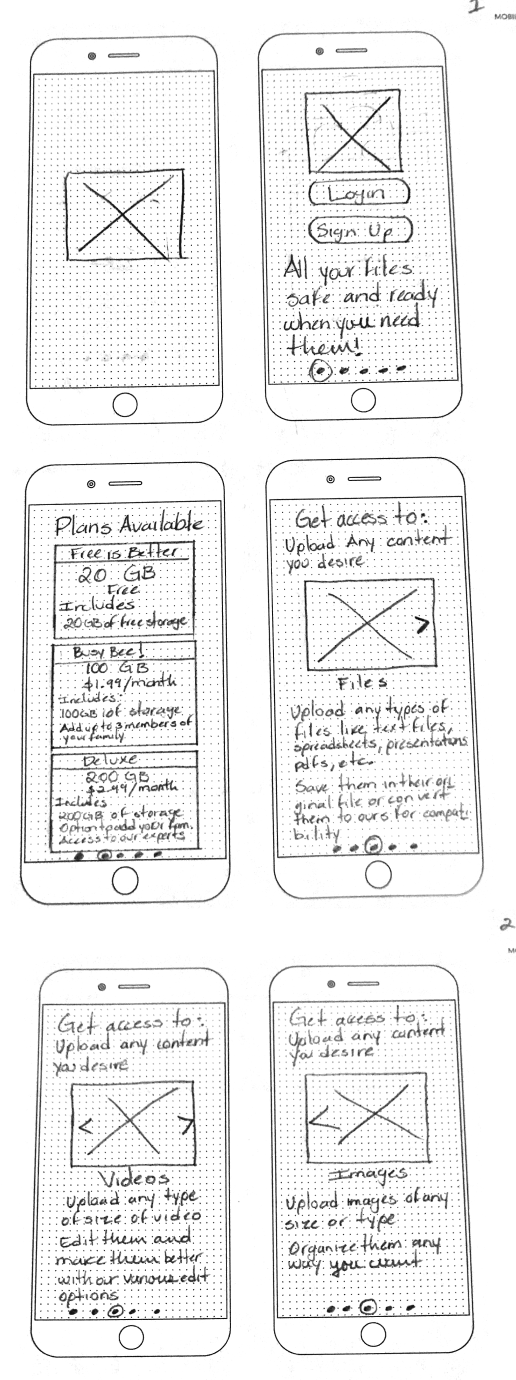 1
Login
Sign Up
All your files
safe and ready
when you need
them!
Plans Available
Free is Better
20 GB
Free
Includes
20GB of free storage
Busy Bee!
100 GB
$1.99/month
Includes:
100GB of storage
Add up to 3 members of
your family
Deluxe
200 GB
$2.99/month
Includes
200GB of storage
Option to add your fam.
Access to our experts
Get access to:
Upload Any content
you desire
>
Files
Upload any types of
files like, text files,
spreadsheets, presentations
pdfs, etc.
Save them in their ori
ginal file or convert
them to ours for compati
bility
2
Get access to:
Upload any content
you desire
< >
Videos
Upload any type
of size of video
Edit them and
make them better
with our various edit
options
Get access to:
Upload any content
you desire
<
Images
Upload images of any
size or type
Organize them any
way you want